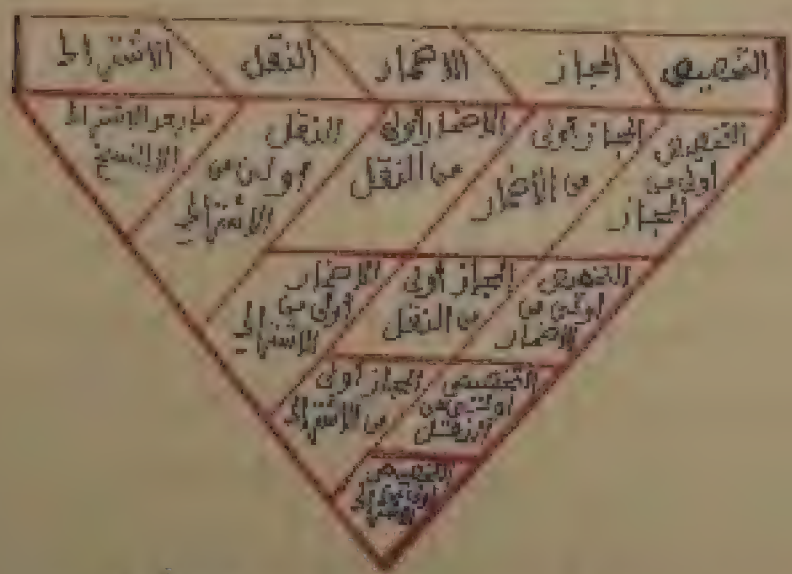 التخصيص المجاز الاضمار النقل الاشتراك
التخصيص
اولى من
المجاز
المجاز أولى
من الأضمار
الاضمار أولى
من النقل
النقل
اولى من
الاشتراك
ما بعد الاشتراك
الا النسخ
التخصيص
اولى من
الاضمار
المجاز أولى
من النقل
الاضمار
اولى من
الاشتراك
التخصيص
اولى من
النقل
المجاز أولى
من الاشتراك
التخصيص
اولى من
الاشتراك